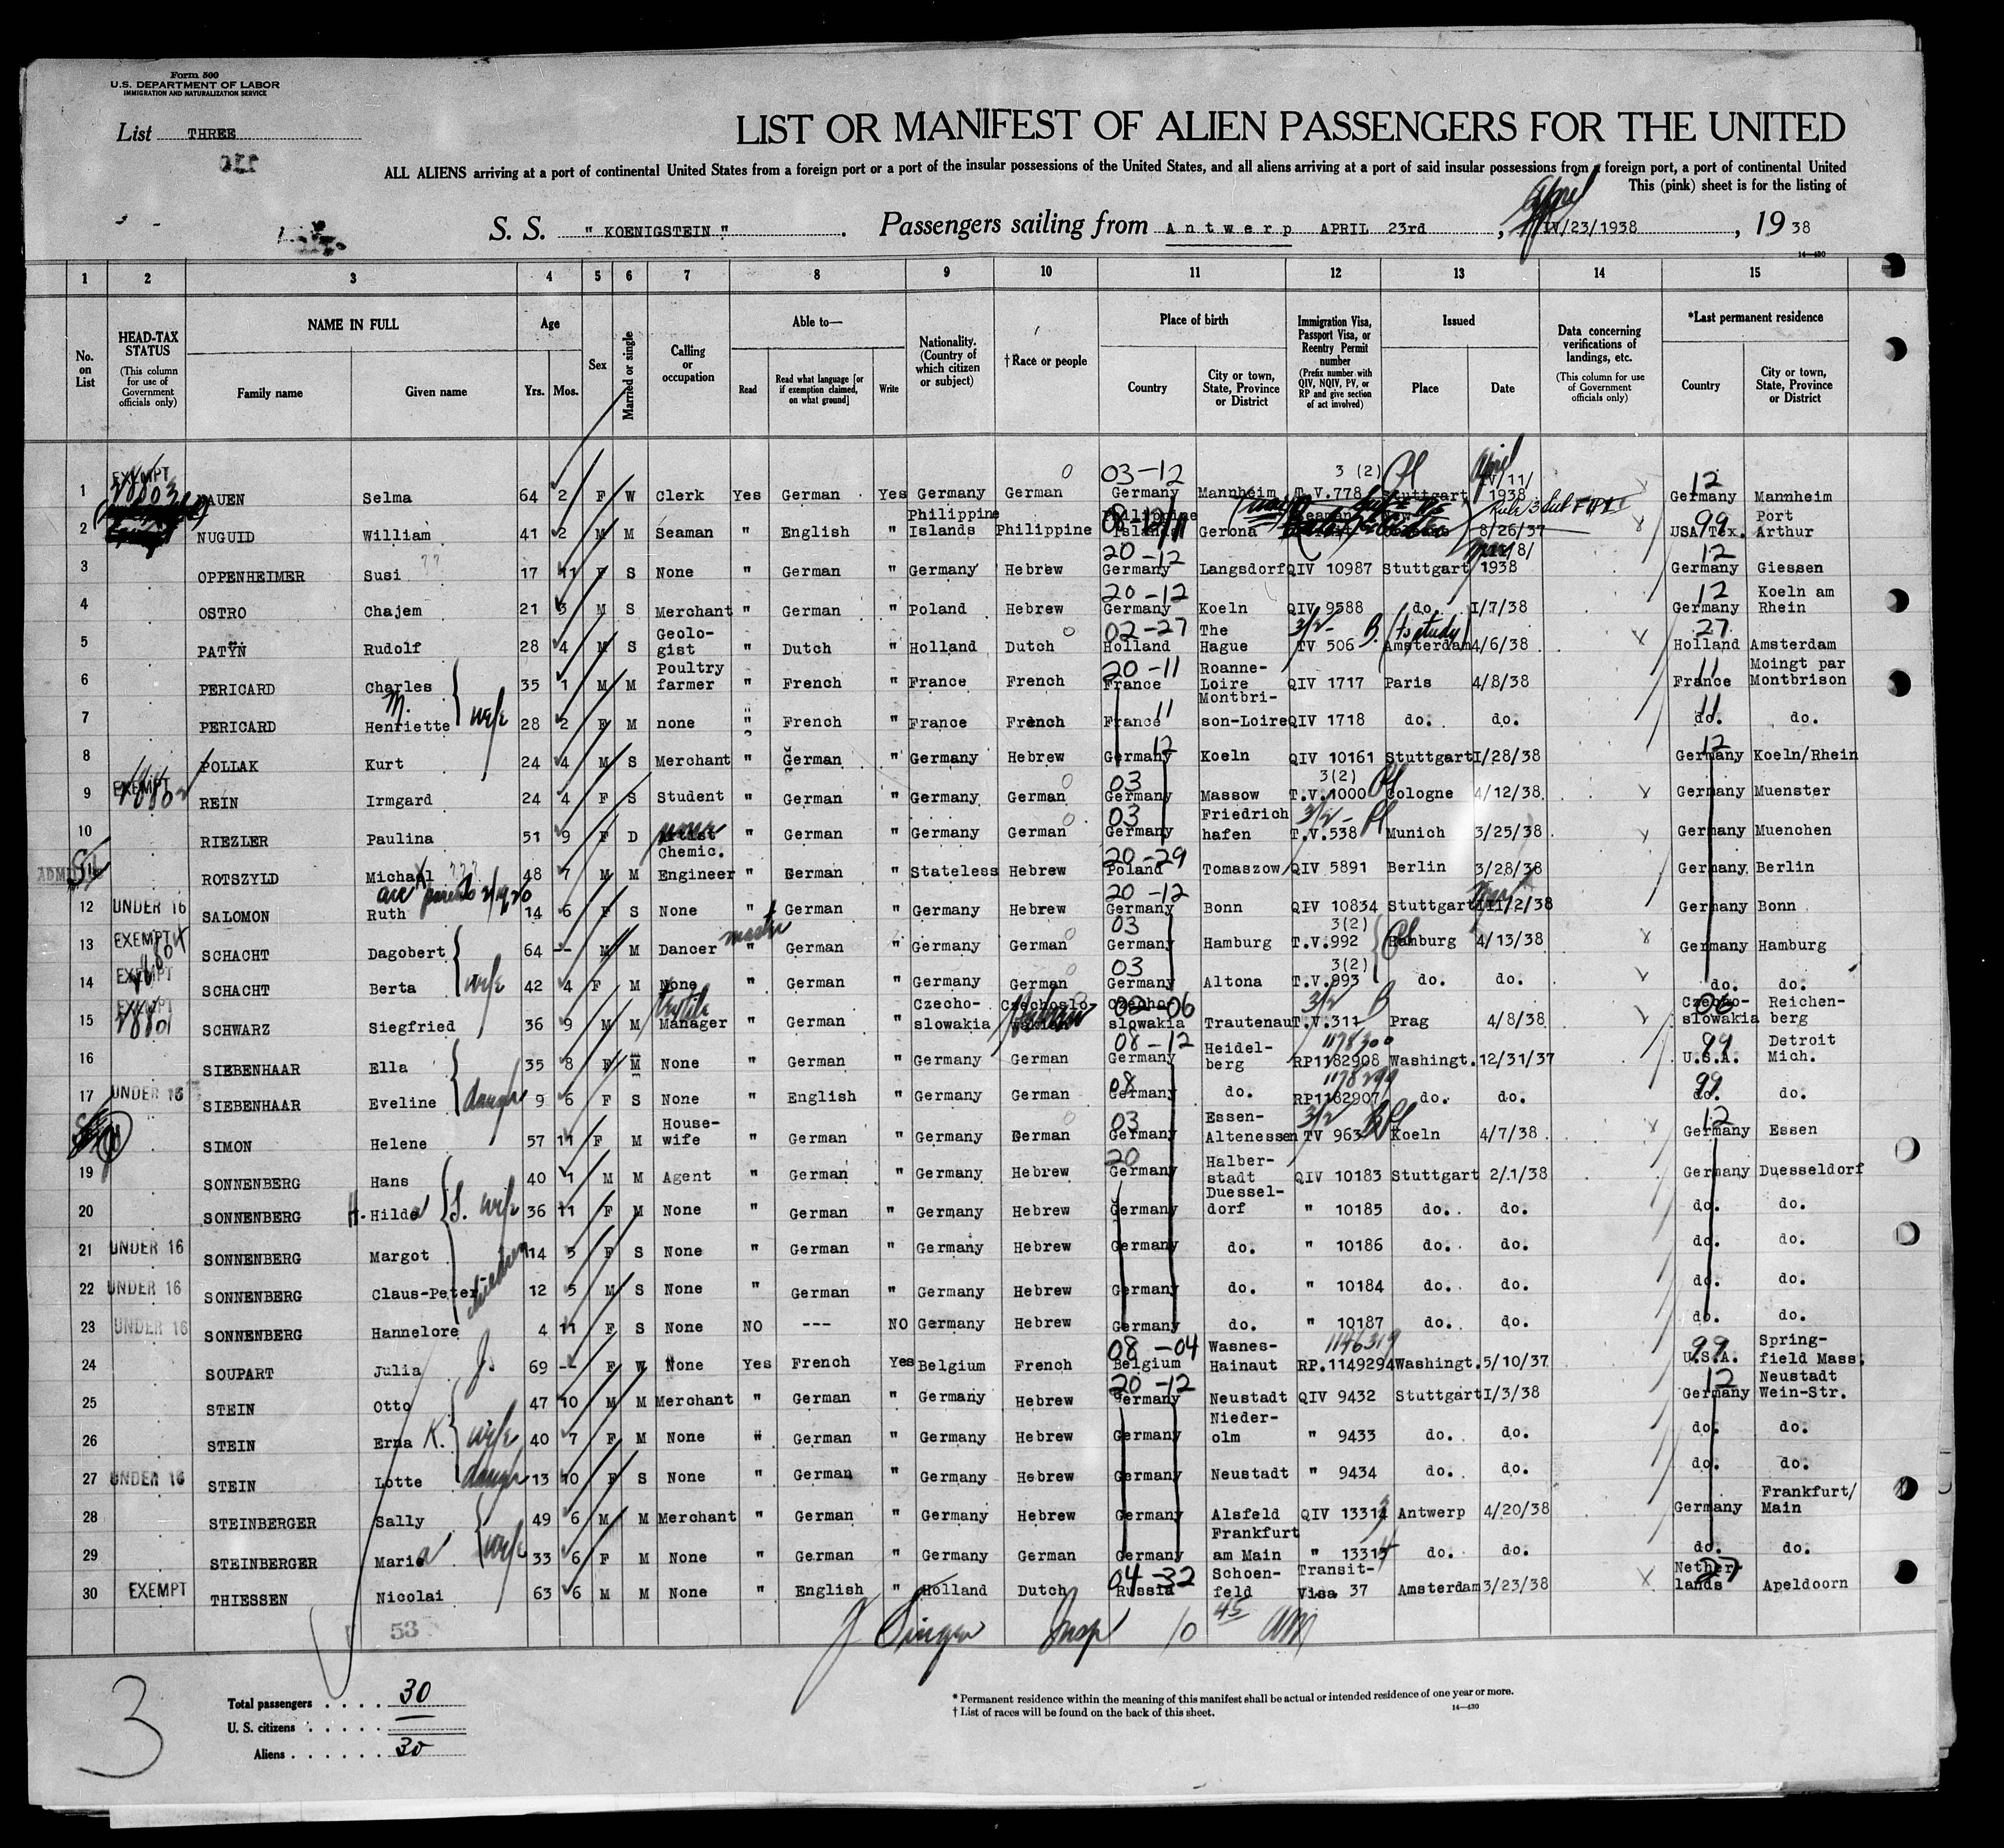 Form 500
U.S. DEPARTMENT OF LABOR
IMMIGRATION AND NATURALIZATION SERVICE
List THREE
LIST OR MANIFEST OF ALIEN PASSENGERS FOR THE UNITED
ALL ALIENS arriving at a port of continental United States from a foreign port or a port of the insular possessions of the United States, and all aliens arriving at a port of said insular possessions from a foreign port, a port of continental United
This (pink) sheet is for the listing of
S. S. " KOENIGSTEIN ". Passengers sailing from Antwerp APRIL 23rd , April IV/23/1938 , 19 38
14—430
1 2 3 4 5 6 7 8 9 10 11 12 13 14 15
No. on List
HEAD-TAX STATUS (This column for use of Government officials only)
NAME IN FULL
Family name Given name
Age Yrs. Mos.
Sex
Married or single
Calling or occupation
Able to— Read Read what language [or if exemption claimed, on what ground] Write
Nationality. (Country of which citizen or subject)
†Race or people
Place of birth Country City or town, State, Province or District
Immigration Visa, Passport Visa, or Reentry Permit number (Prefix number with QIV, NQIV, PV, or RP and give section of act involved)
Issued Place Date
Data concerning verifications of landings, etc. (This column for use of Government officials only)
*Last permanent residence Country City or town, State, Province or District
1 EXEMPT AUEN Selma 64 2 F W Clerk Yes German Yes Germany German 03-12 Germany Mannheim 3 (2) T.V.778 Stuttgart April IV/11/1938 12 Germany Mannheim
2 NUGUID William 41 2 M M Seaman " English " Philippine Islands Philippine Philippine Islands Gerona 8/26/37 99 USA Tex. Port Arthur
3 OPPENHEIMER Susi ?? 17 11 F S None " German " Germany Hebrew 20-12 Germany Langsdorf QIV 10987 Stuttgart /8/1938 12 Germany Giessen
4 OSTRO Chajem 21 3 M S Merchant " German " Poland Hebrew 20-12 Germany Koeln QIV 9588 do. I/7/38 12 Germany Koeln am Rhein
5 PATYN Rudolf 28 4 M S Geologist " Dutch " Holland Dutch 02-27 Holland The Hague 3/2- TV 506 (to study) Amsterdam 4/6/38 27 Holland Amsterdam
6 PERICARD Charles 35 1 M M Poultry farmer " French " France French 20-11 France Roanne-Loire QIV 1717 Paris 4/8/38 11 France Moingt par Montbrison
7 PERICARD M. Henriette wife 28 2 F M none " French " France French 11 France Montbrison-Loire QIV 1718 do. do. 11 do. do.
8 POLLAK Kurt 24 4 M S Merchant " German " Germany Hebrew 12 Germany Koeln QIV 10161 Stuttgart I/28/38 12 Germany Koeln/Rhein
9 EXEMPT REIN Irmgard 24 4 F S Student " German " Germany German 03 Germany Massow 3(2) T.V.1000 Cologne 4/12/38 Germany Muenster
10 RIEZLER Paulina 51 9 F D " German " Germany German 03 Germany Friedrichhafen 3/2- T.V.538 Munich 3/25/38 Germany Muenchen
ROTSZYLD Michael ??? 48 7 M M Chemic. Engineer " German " Stateless Hebrew 20-29 Poland Tomaszow QIV 5891 Berlin 3/28/38 Germany Berlin
12 UNDER 16 SALOMON Ruth 14 6 F S None " German " Germany Hebrew 20-12 Germany Bonn QIV 10834 Stuttgart III/2/38 Germany Bonn
13 EXEMPT SCHACHT Dagobert 64 -- M M Dancer " German " Germany German 03 Germany Hamburg 3(2) T.V.992 Hamburg 4/13/38 Germany Hamburg
14 EXEMPT SCHACHT Berta wife 42 4 F M None " German " Germany German 03 Germany Altona 3(2) T.V.993 do. do. do. do.
15 EXEMPT SCHWARZ Siegfried 36 9 M M textile Manager " German " Czechoslovakia 02-06 Czechoslovakia Trautenau 3/2 T.V.311 Prag 4/8/38 06 Czechoslovakia Reichenberg
16 SIEBENHAAR Ella 35 8 F M None " German " Germany German 08-12 Germany Heidelberg 1178300 RP1182908 Washingt. 12/31/37 99 U.S.A. Detroit Mich.
17 UNDER 16 SIEBENHAAR Eveline 9 6 F S None " English " Germany German 08 Germany do. 1178299 RP1182907 do. do. 99 do. do.
SIMON Helene 57 11 F M Housewife " German " Germany German 03 Germany Essen-Altenessen 3/2 TV 963 Koeln 4/7/38 12 Germany Essen
19 SONNENBERG Hans 40 1 M M Agent " German " Germany Hebrew 20 Germany Halberstadt QIV 10183 Stuttgart 2/1/38 Germany Duesseldorf
20 SONNENBERG H. Hilda S. wife 36 11 F M None " German " Germany Hebrew Germany Duesseldorf " 10185 do. do. do. do.
21 UNDER 16 SONNENBERG Margot 14 5 F S None " German " Germany Hebrew Germany do. " 10186 do. do. do. do.
22 UNDER 16 SONNENBERG Claus-Peter children 12 5 M S None " German " Germany Hebrew Germany do. " 10184 do. do. do. do.
23 UNDER 16 SONNENBERG Hannelore 4 11 F S None NO --- NO Germany Hebrew Germany do. " 10187 do. do. do. do.
24 SOUPART Julia J. 69 -- F W None Yes French Yes Belgium French 08-04 Belgium Wasnes-Hainaut 1146319 RP.1149294 Washingt. 5/10/37 99 U.S.A. Springfield Mass.
25 STEIN Otto 47 10 M M Merchant " German " Germany Hebrew 20-12 Germany Neustadt QIV 9432 Stuttgart I/3/38 12 Germany Neustadt Wein-Str.
26 STEIN Erna K. wife 40 7 F M None " German " Germany Hebrew Germany Nieder-olm " 9433 do. do. do. do.
27 UNDER 16 STEIN Lotte 13 10 F S None " German " Germany Hebrew Germany Neustadt " 9434 do. do. do. do.
28 STEINBERGER Sally 49 6 M M Merchant " German " Germany Hebrew Germany Alsfeld QIV Antwerp 4/20/38 Germany Frankfurt/Main
29 STEINBERGER Maria wife 33 6 F M None " German " Germany German Germany Frankfurt am Main " do. do. do. do.
30 EXEMPT THIESSEN Nicolai 63 6 M M None " English " Holland Dutch 04-32 Russia Schoenfeld Transit-Visa 37 Amsterdam 3/23/38 27 Netherlands Apeldoorn
53
J Singer Insp 10 45 AM
3
Total passengers . . . . 30
U. S. citizens . . . . .
Aliens . . . . . . 30
* Permanent residence within the meaning of this manifest shall be actual or intended residence of one year or more.
† List of races will be found on the back of this sheet.
14—430